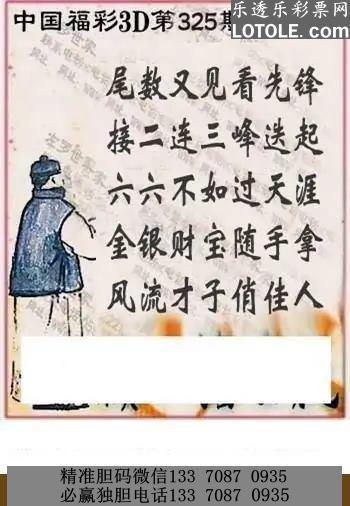 中国福彩3D第325期
乐透乐彩票网
LOTOLE.com
尾数又见看先锋
接二连三峰迭起
六六不如过天涯
金银财宝随手拿
风流才子俏佳人
精准胆码微信133 7087 0935
必赢独胆电话133 7087 0935